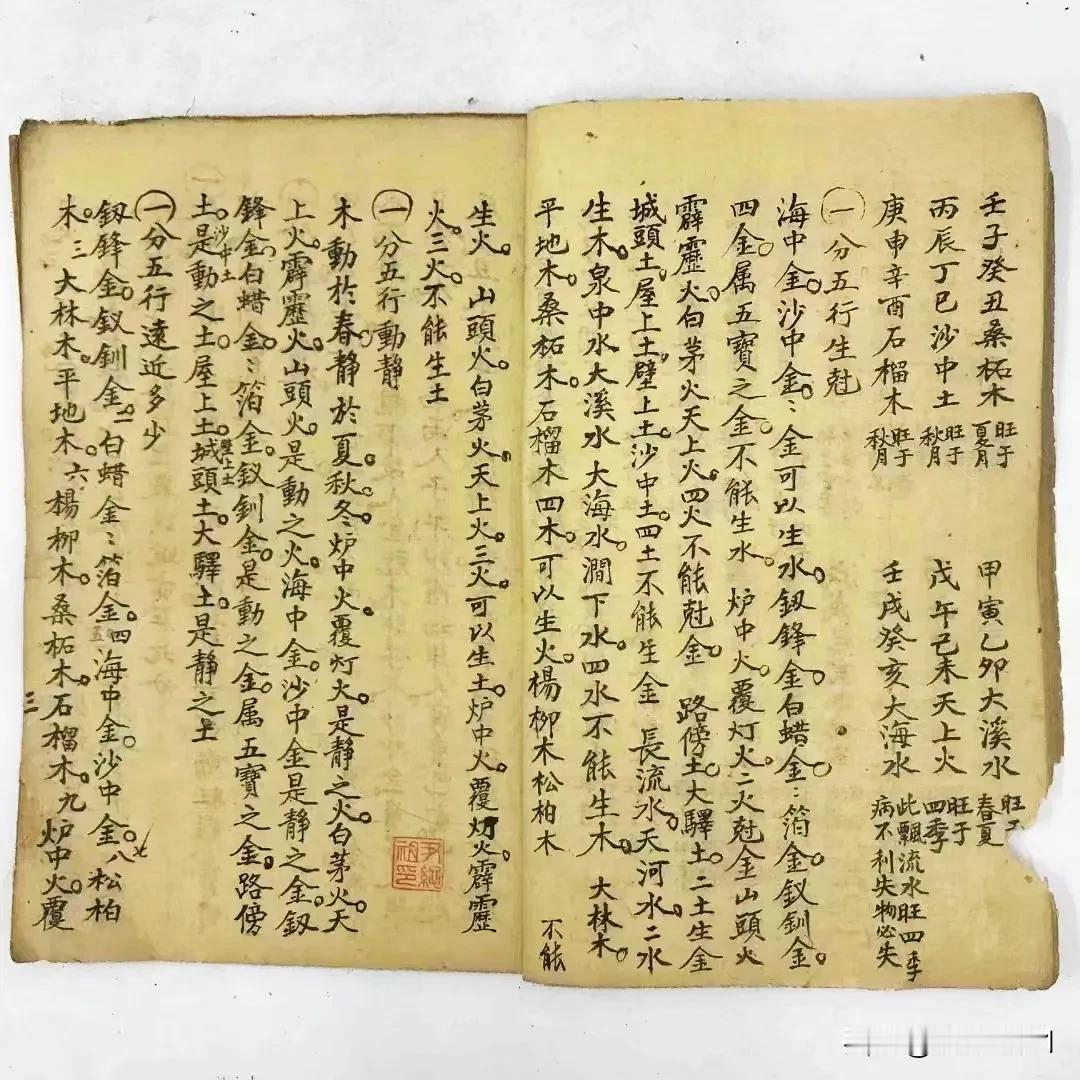 壬子癸丑桑柘木 旺于夏月 甲寅乙卯大溪水 旺于春夏
丙辰丁巳沙中土 旺于秋月 戊午己未天上火 旺于四季
庚申辛酉石榴木 旺于秋月 壬戌癸亥大海水 此飄流水旺四季病不利失物必失
一 分五行生尅
海中金。沙中金。〻金可以生水。釼鋒金。白蜡金。〻箔金。釵釧金。
四金属五寶之金。不能生水。 炉中火。覆灯火。二火尅金 山頭火
霹靂火。白茅火 天上火。四火不能尅金 路傍土。大驛土。二土生金
城頭土。屋上土。壁上土。沙中土。四土不能生金 長流水。天河水。二水
生木。泉中水 大溪水 大海水。澗下水。四水不能生木。 大林木。
平地木。桑柘木。石榴木 四木。可以生火。楊柳木 松柏木 不能
生火。 山頭火。白茅火 天上火。三火可以生土。炉中火。覆灯火。霹靂
火。三火。不能生土
一 分五行動靜
木動於春。靜於夏。秋。冬。炉中火 覆灯火。是靜之火。白茅火。天
上火。霹靂火。山頭火。是動之火。海中金。沙中金。是靜之金。釼
鋒金。白蜡金。〻箔金。釵釧金。是動之金。属五寶之金。路傍
土。沙中土。是動之土。屋上土。壁上土 城頭土。大驛土。是靜之土
一 分五行遠近多少
釼鋒金。釵釧金。二白蜡金〻箔金。四海中金。沙中金。七八松柏
木。三大林木。平地木。六楊柳木。桑柘木。石榴木。九炉中火。覆
三